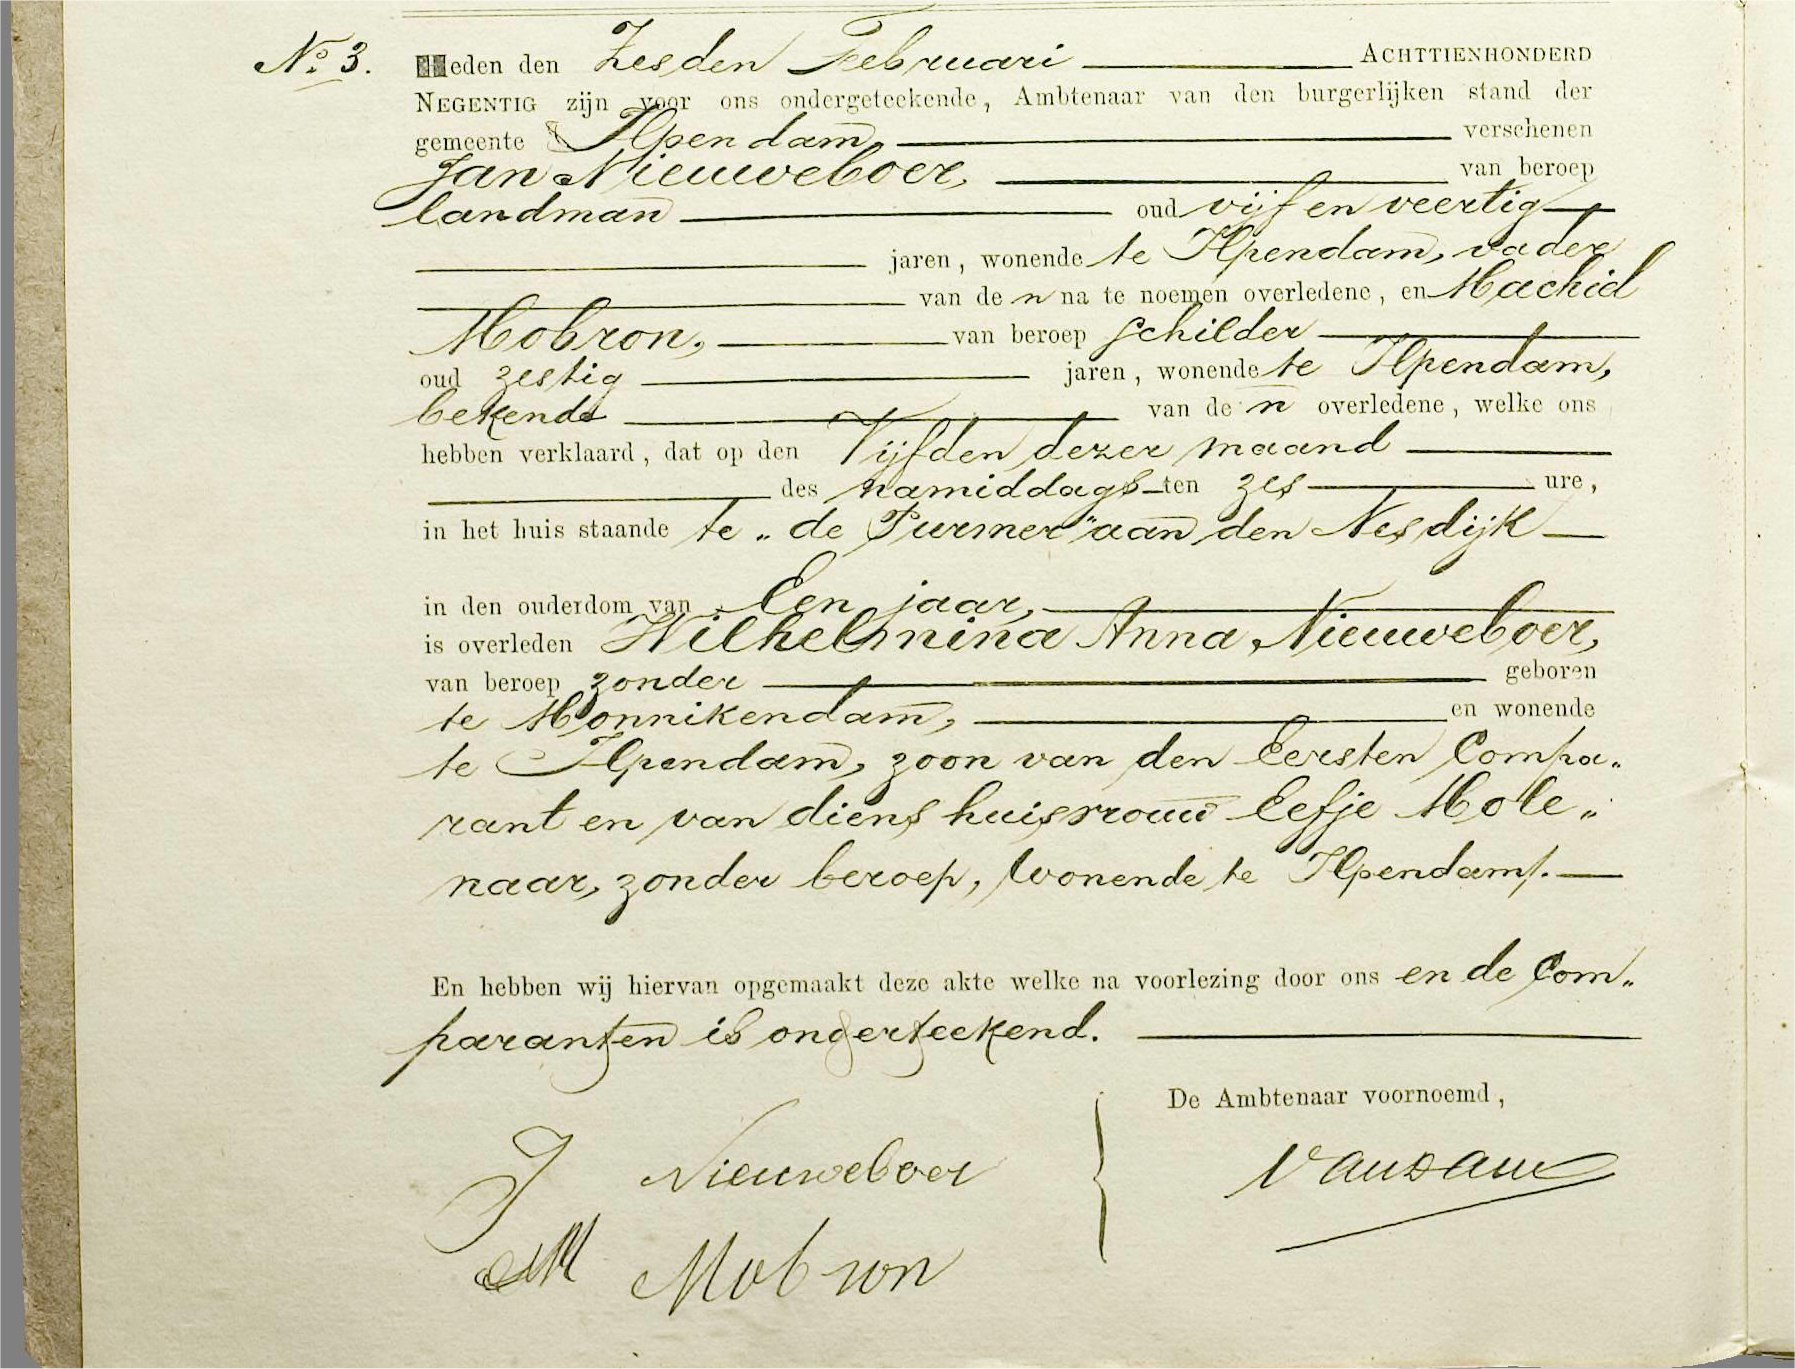 No. 3.
Heden den Zesden Februari ACHTTIENHONDERD
NEGENTIG zijn voor ons ondergeteekende, Ambtenaar van den burgerlijken stand der
gemeente Ilpendam verschenen
Jan Nieuweboer, van beroep
landman oud vijf en veertig
jaren, wonende te Ilpendam, vader
van de n na te noemen overledene, en Machiel
Mobron, van beroep schilder
oud zestig jaren, wonende te Ilpendam,
bekende van de n overledene, welke ons
hebben verklaard, dat op den Vijfden dezer maand
des namiddags ten zes ure,
in het huis staande te „de Purmer" aan den Nesdijk
in den ouderdom van Een jaar,
is overleden Wilhelmina Anna Nieuweboer,
van beroep zonder geboren
te Monnikendam, en wonende
te Ilpendam, zoon van den Eersten Compa„
rant en van diens huisvrouw Eefje Mole„
naar, zonder beroep, wonende te Ilpendam.
En hebben wij hiervan opgemaakt deze akte welke na voorlezing door ons en de Com„
paranten is onderteekend.
De Ambtenaar voornoemd,
J Nieuweboer
M Mobron